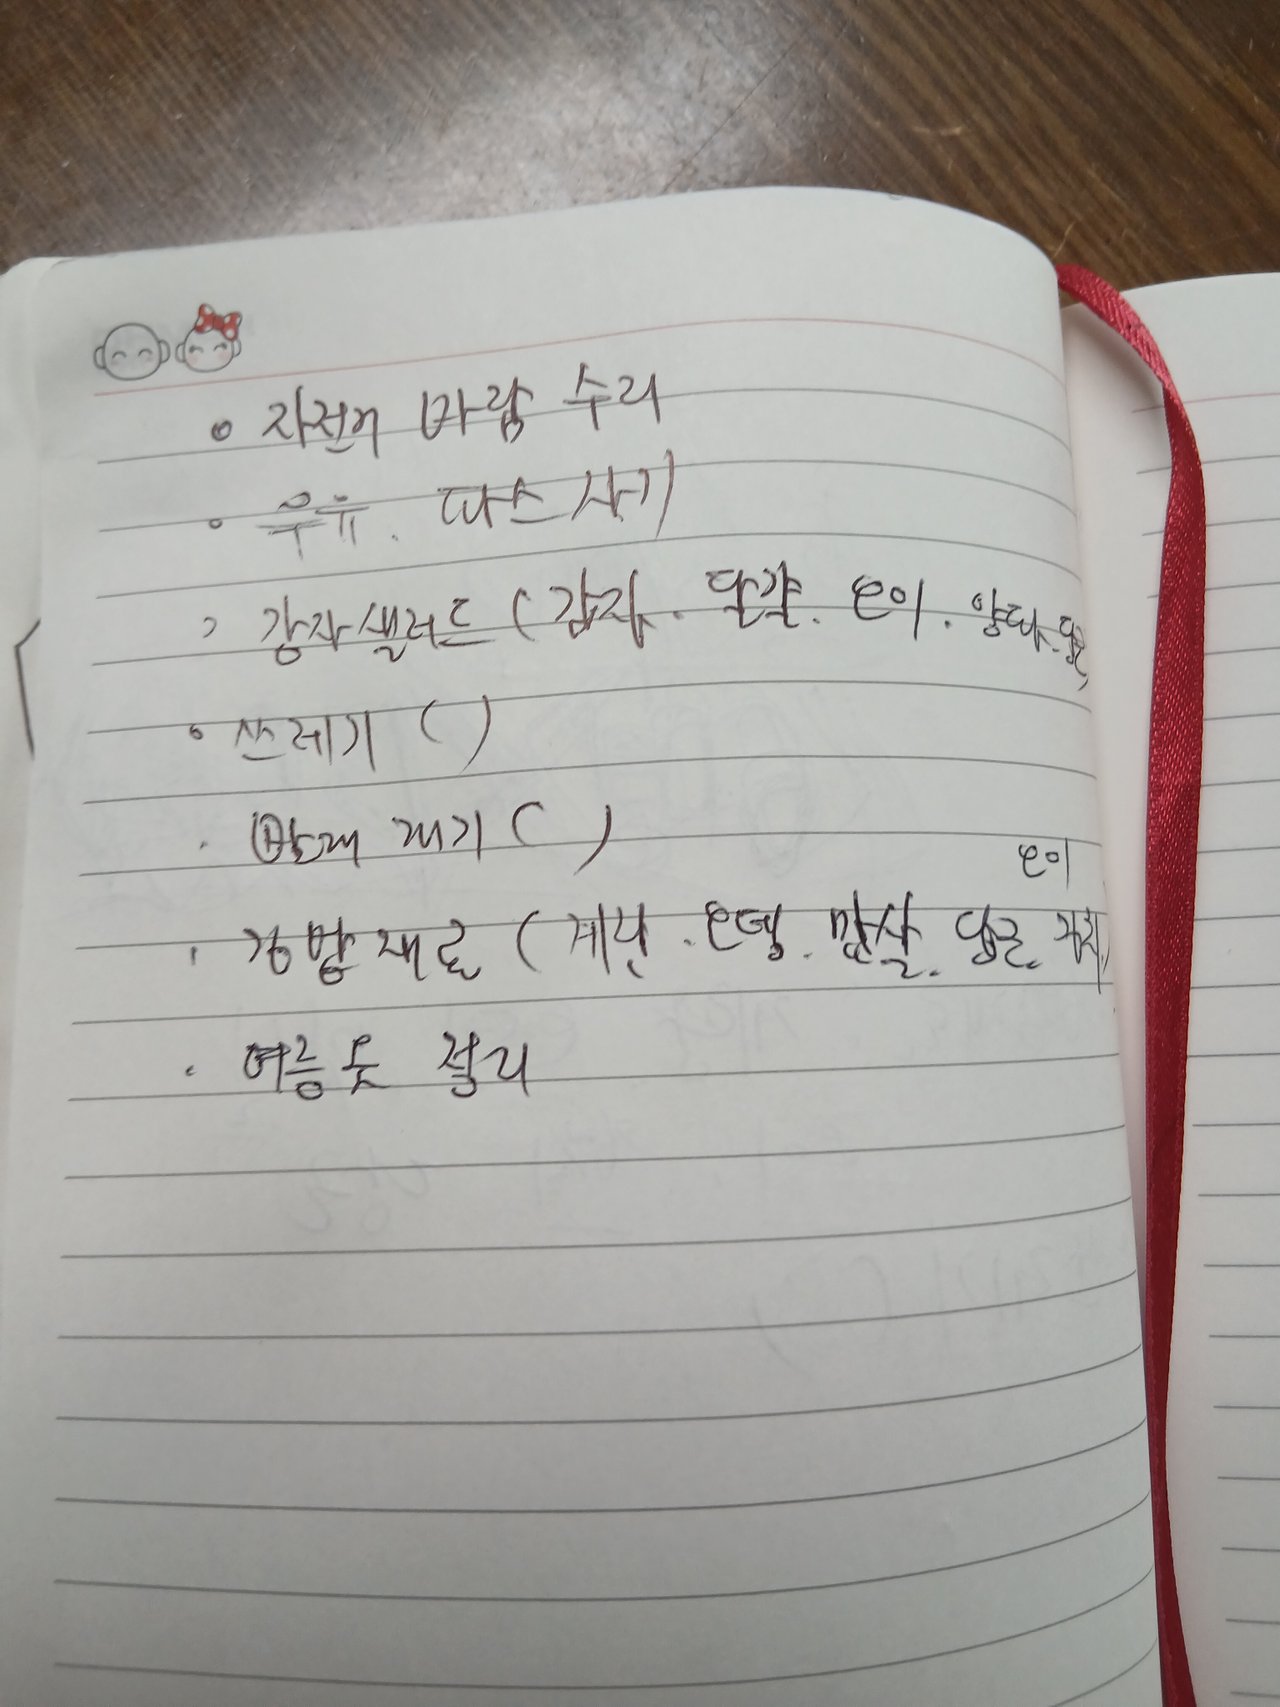 • 자전거 바람 수리
• 우유. 파스 사기
• 감자샐러드 (감자. 달걀. 오이. 양파. 당근)
• 쓰레기 ( )
• 빨래 개기 ( )
오이
• 김밥재료 (계란. 오뎅. 맛살. 당근. 김치)
• 여름옷 정리